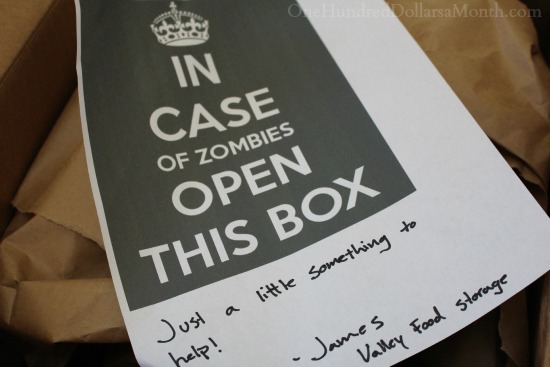 OneHundredDollarsaMonth.com
IN
CASE
OF ZOMBIES
OPEN
THIS BOX
Just a little something to
help!
- James
Valley Food Storage